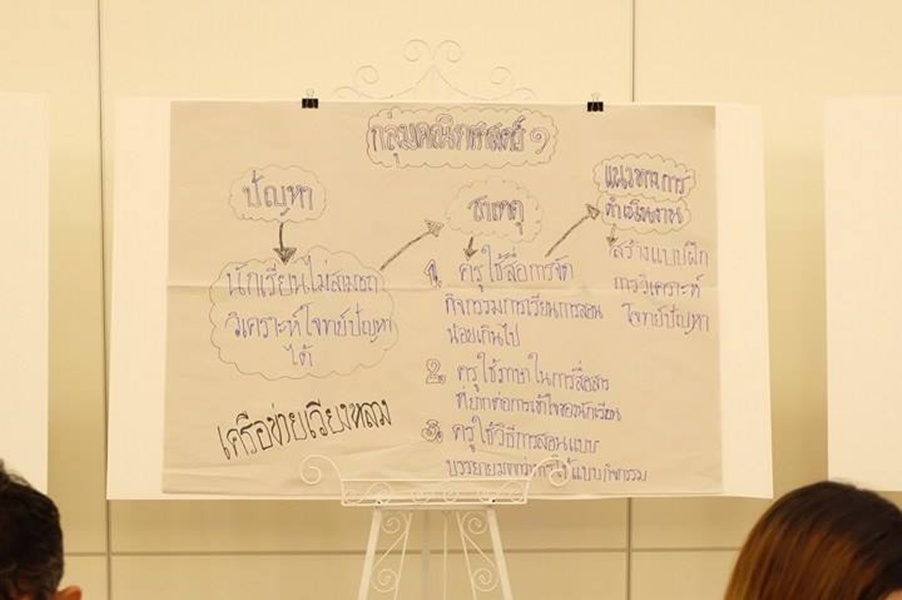 กลุ่มคณิตศาสตร์ ๑
ปัญหา
นักเรียนไม่สามารถ
วิเคราะห์โจทย์ปัญหา
ได้
เครือข่ายเวียงหลวง
สาเหตุ
1. ครูใช้สื่อการจัด
กิจกรรมการเรียนการสอน
น้อยเกินไป
2. ครูใช้ภาษาในการสื่อสาร
ที่ยากต่อการเข้าใจของนักเรียน
3. ครูใช้วิธีการสอนแบบ
บรรยายมากกว่าการใช้แบบกิจกรรม
แนวทางการ
ดำเนินงาน
สร้างแบบฝึก
การวิเคราะห์
โจทย์ปัญหา